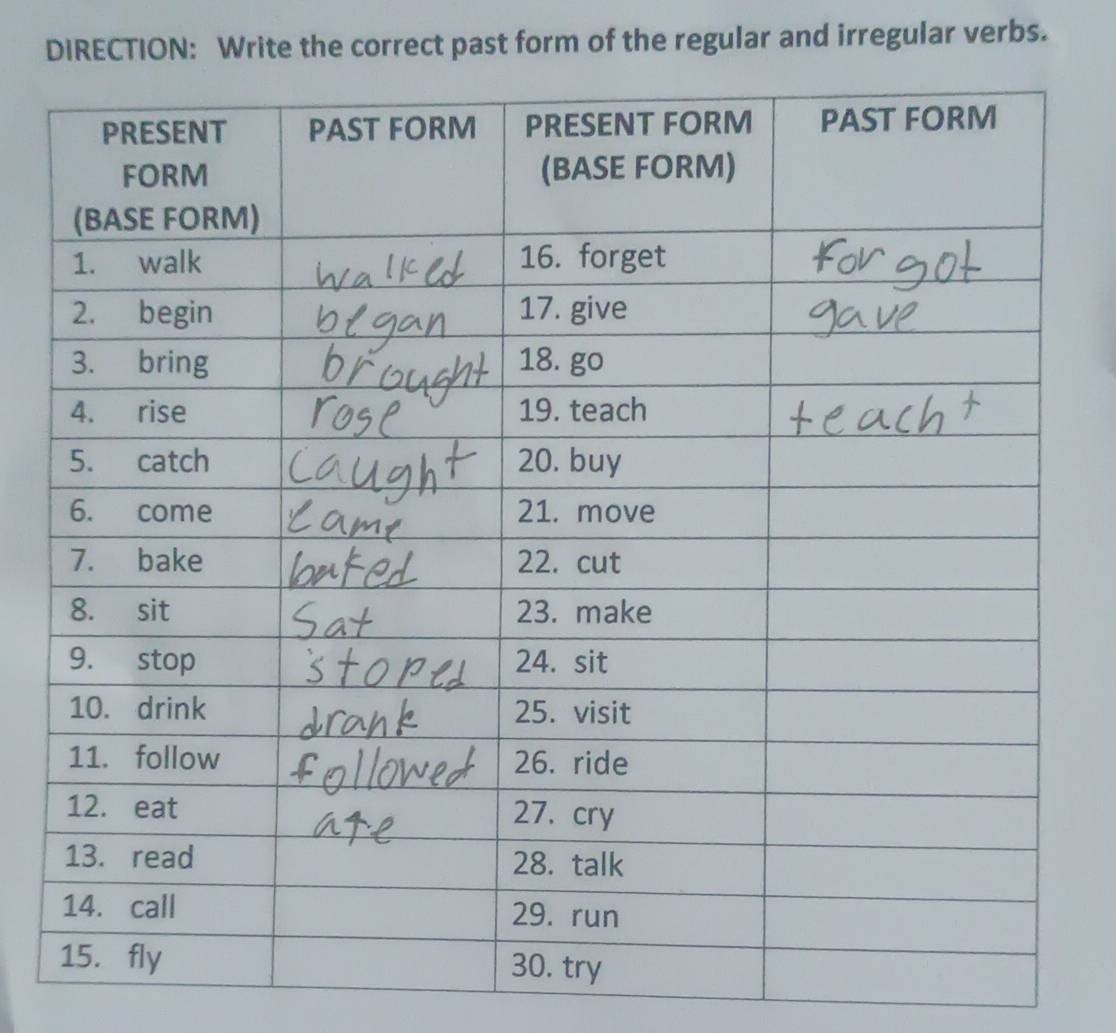 DIRECTION: Write the correct past form of the regular and irregular verbs.
PRESENT FORM (BASE FORM) PAST FORM PRESENT FORM (BASE FORM) PAST FORM
1. walk walked 16. forget forgot
2. begin began 17. give gave
3. bring brought 18. go
4. rise rose 19. teach teacht
5. catch caught 20. buy
6. come came 21. move
7. bake baked 22. cut
8. sit Sat 23. make
9. stop stoped 24. sit
10. drink drank 25. visit
11. follow followed 26. ride
12. eat ate 27. cry
13. read 28. talk
14. call 29. run
15. fly 30. try